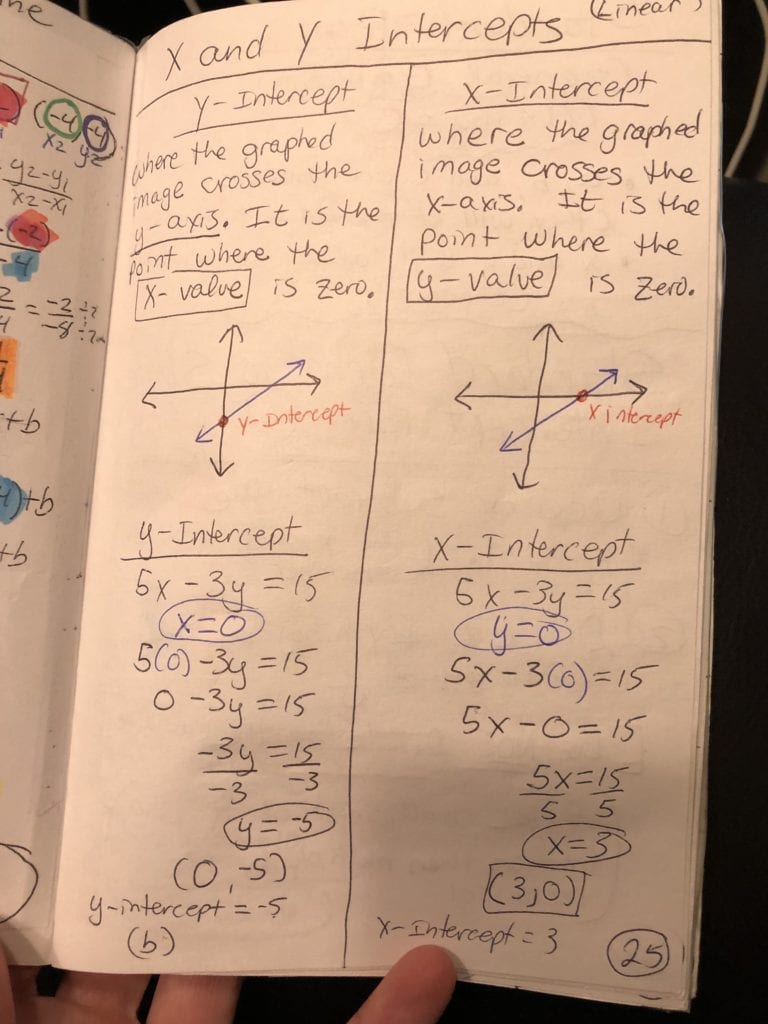 X and Y Intercepts (Linear)
Y-Intercept
where the graphed
image crosses the
y-axis. It is the
point where the
x-value is zero.
Y-Intercept
y-Intercept
5x - 3y = 15
x=0
5(0) - 3y = 15
0 - 3y = 15
-3y = 15
-3 -3
y = -5
(0, -5)
y-intercept = -5
(b)
X-Intercept
where the graphed
image crosses the
x-axis. It is the
point where the
y-value is zero.
x intercept
X-Intercept
5x - 3y = 15
y=0
5x - 3(0) = 15
5x - 0 = 15
5x = 15
5 5
x=3
(3,0)
x-Intercept = 3
25
(-4, -4)
x2 y2
y2-y1
x2-x1
(-2)
-4
= -2 ÷2
-8 ÷2
+b
)+b
+b